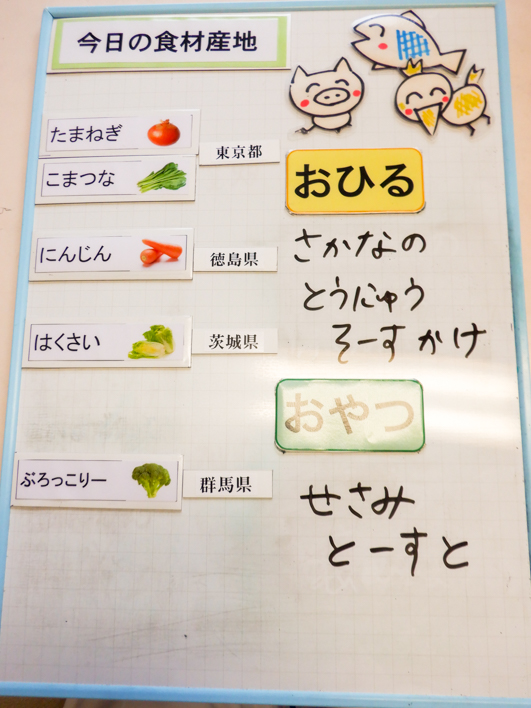 今日の食材産地
たまねぎ
東京都
こまつな
にんじん
徳島県
はくさい
茨城県
ぶろっこりー
群馬県
おひる
さかなの
とうにゅう
そーすかけ
おやつ
せさみ
とーすと